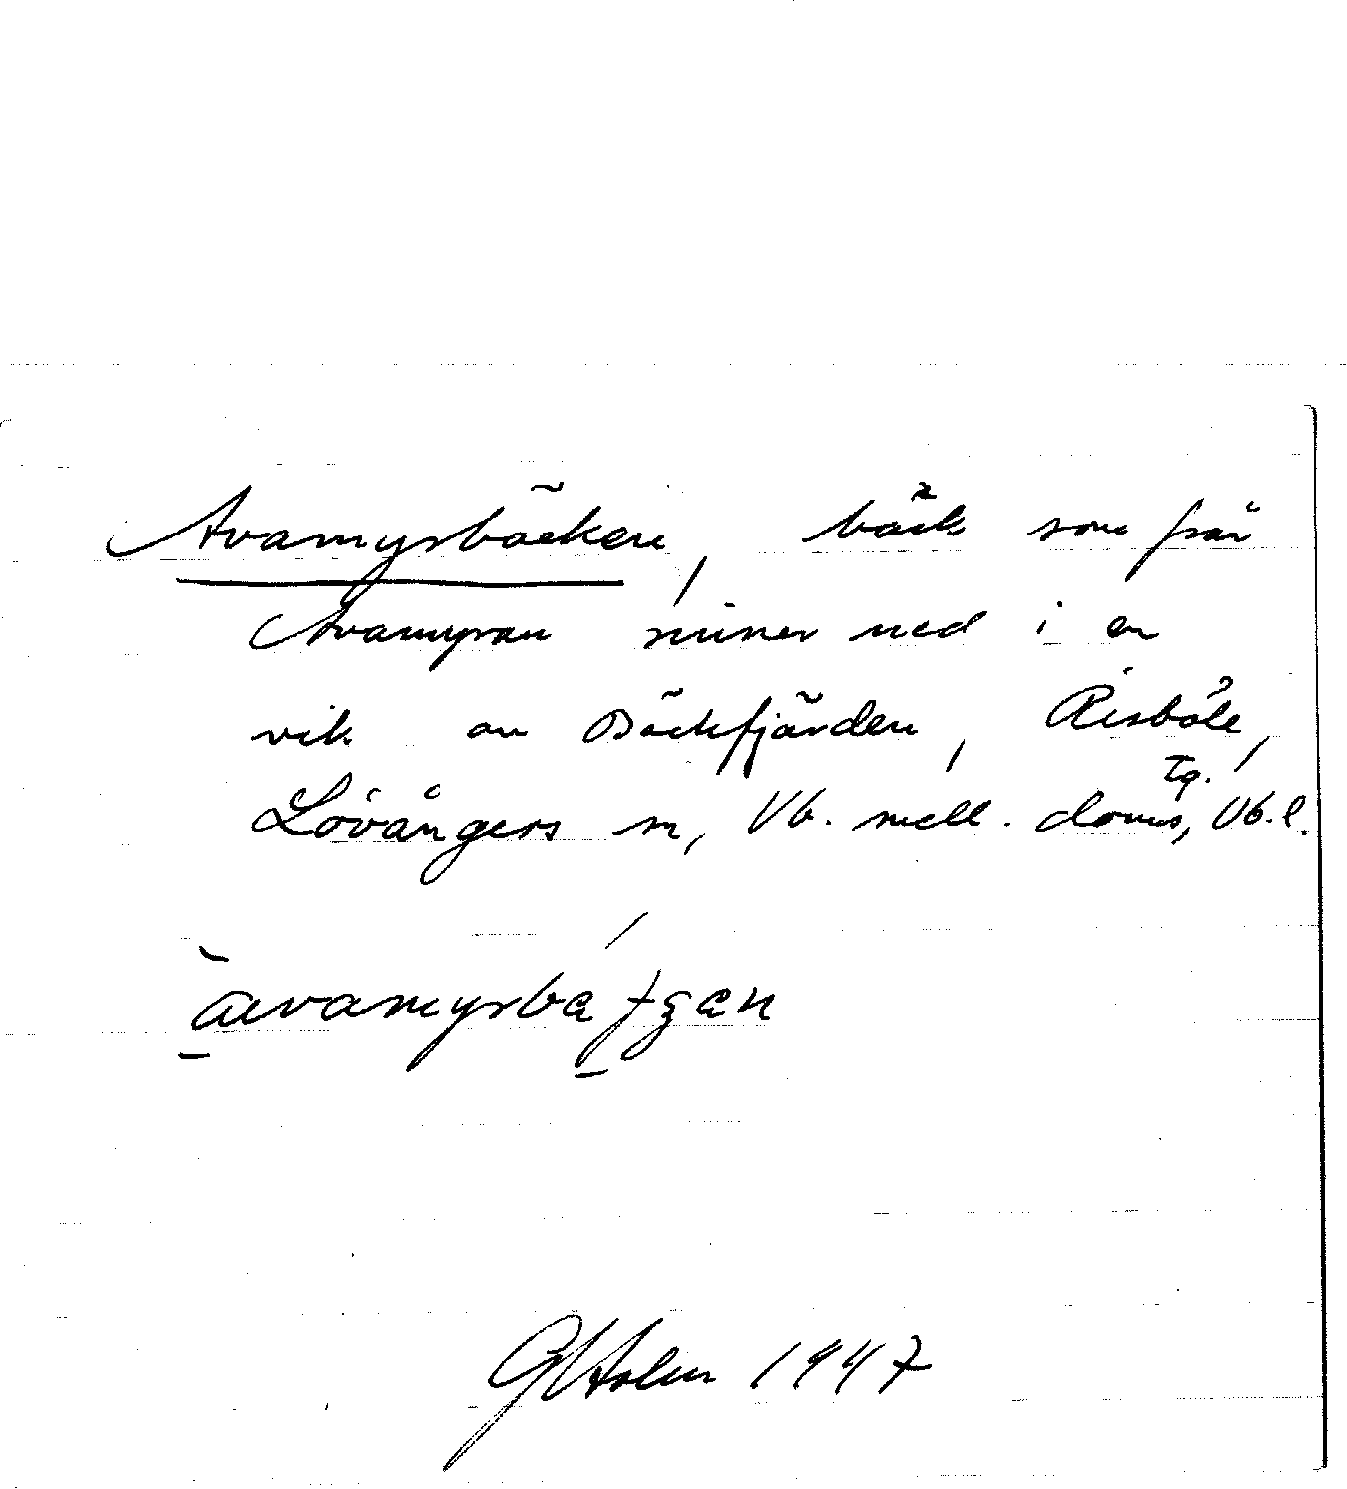 Avamyrbäcken, bäck som från
Avamyran rinner ned i en
vik av Bäckfjärden, Risböle,
Lövångers sn, Vb. mell. doms
tg., Vb. l.
1947